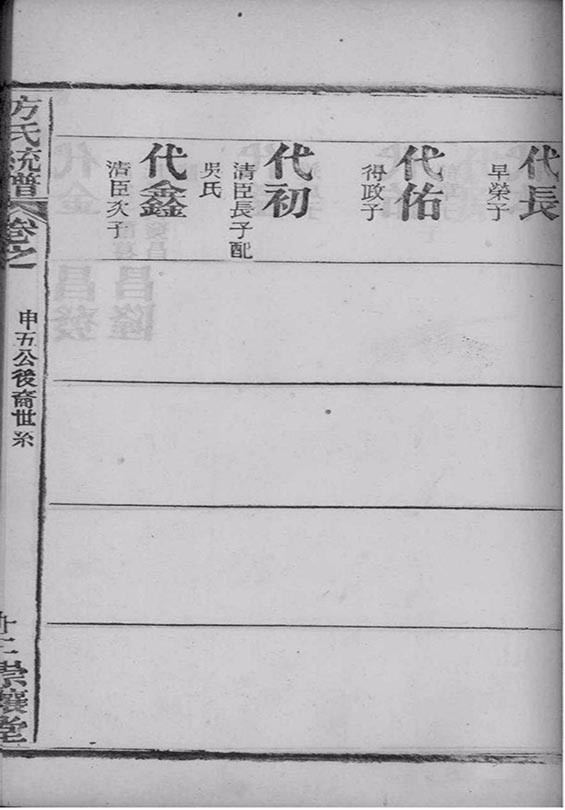 代長
早榮子
代佑
得政子
代初
清臣長子配
吳氏
代鑫
清臣次子
方氏統譜
卷之一
申五公後裔世系
崇讓堂